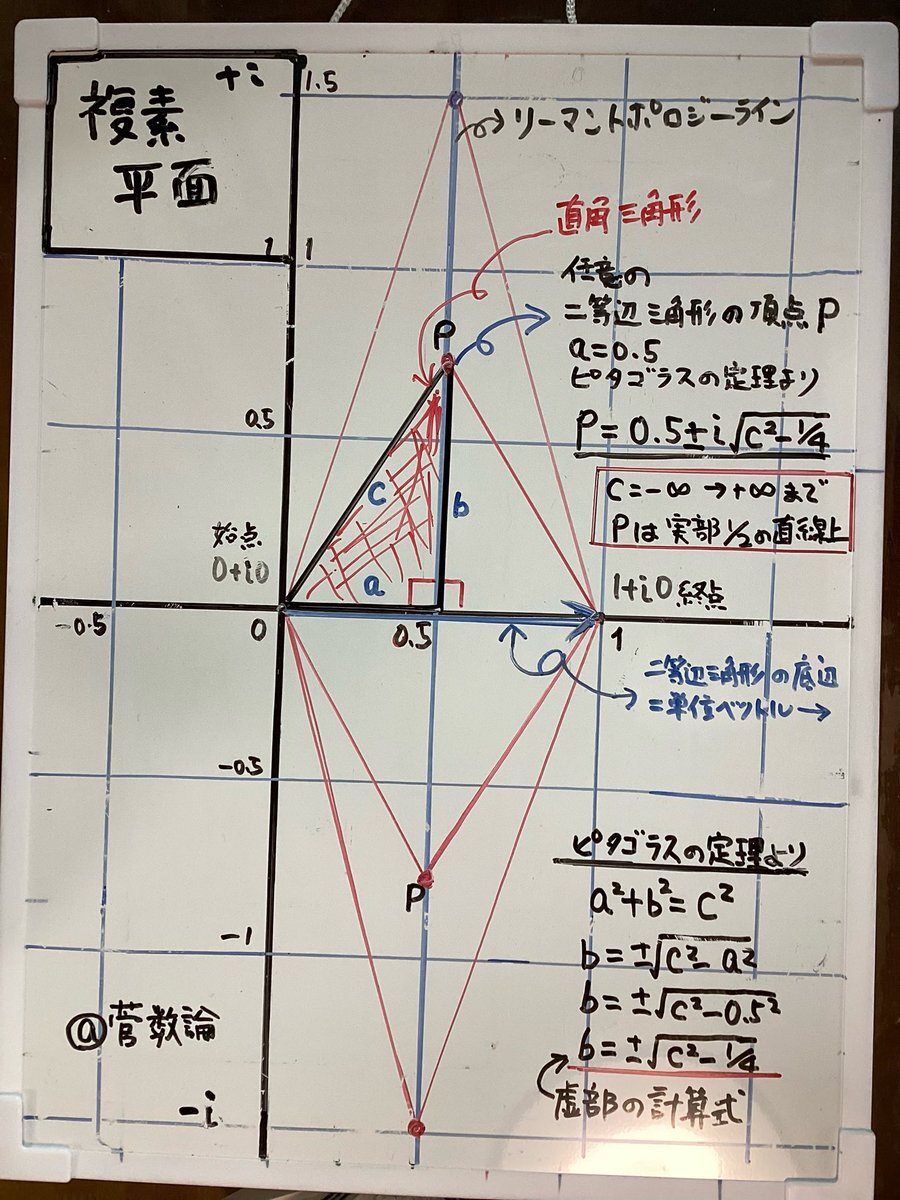 複素
平面
+i
1.5
リーマントポロジーライン
1
1
直角三角形
任意の
二等辺三角形の頂点P
P
a=0.5
ピタゴラスの定理より
0.5
P=0.5±i√c²-¼
c=-∞→+∞まで
Pは実部½の直線上
c
b
a
始点
0+i0
1+i0 終点
-0.5
0
0.5
1
二等辺三角形の底辺
=単位ベットル→
-0.5
P
ピタゴラスの定理より
a²+b²=c²
-1
b=±√c²-a²
b=±√c²-0.5²
b=±√c²-¼
@菅数論
-i
虚部の計算式